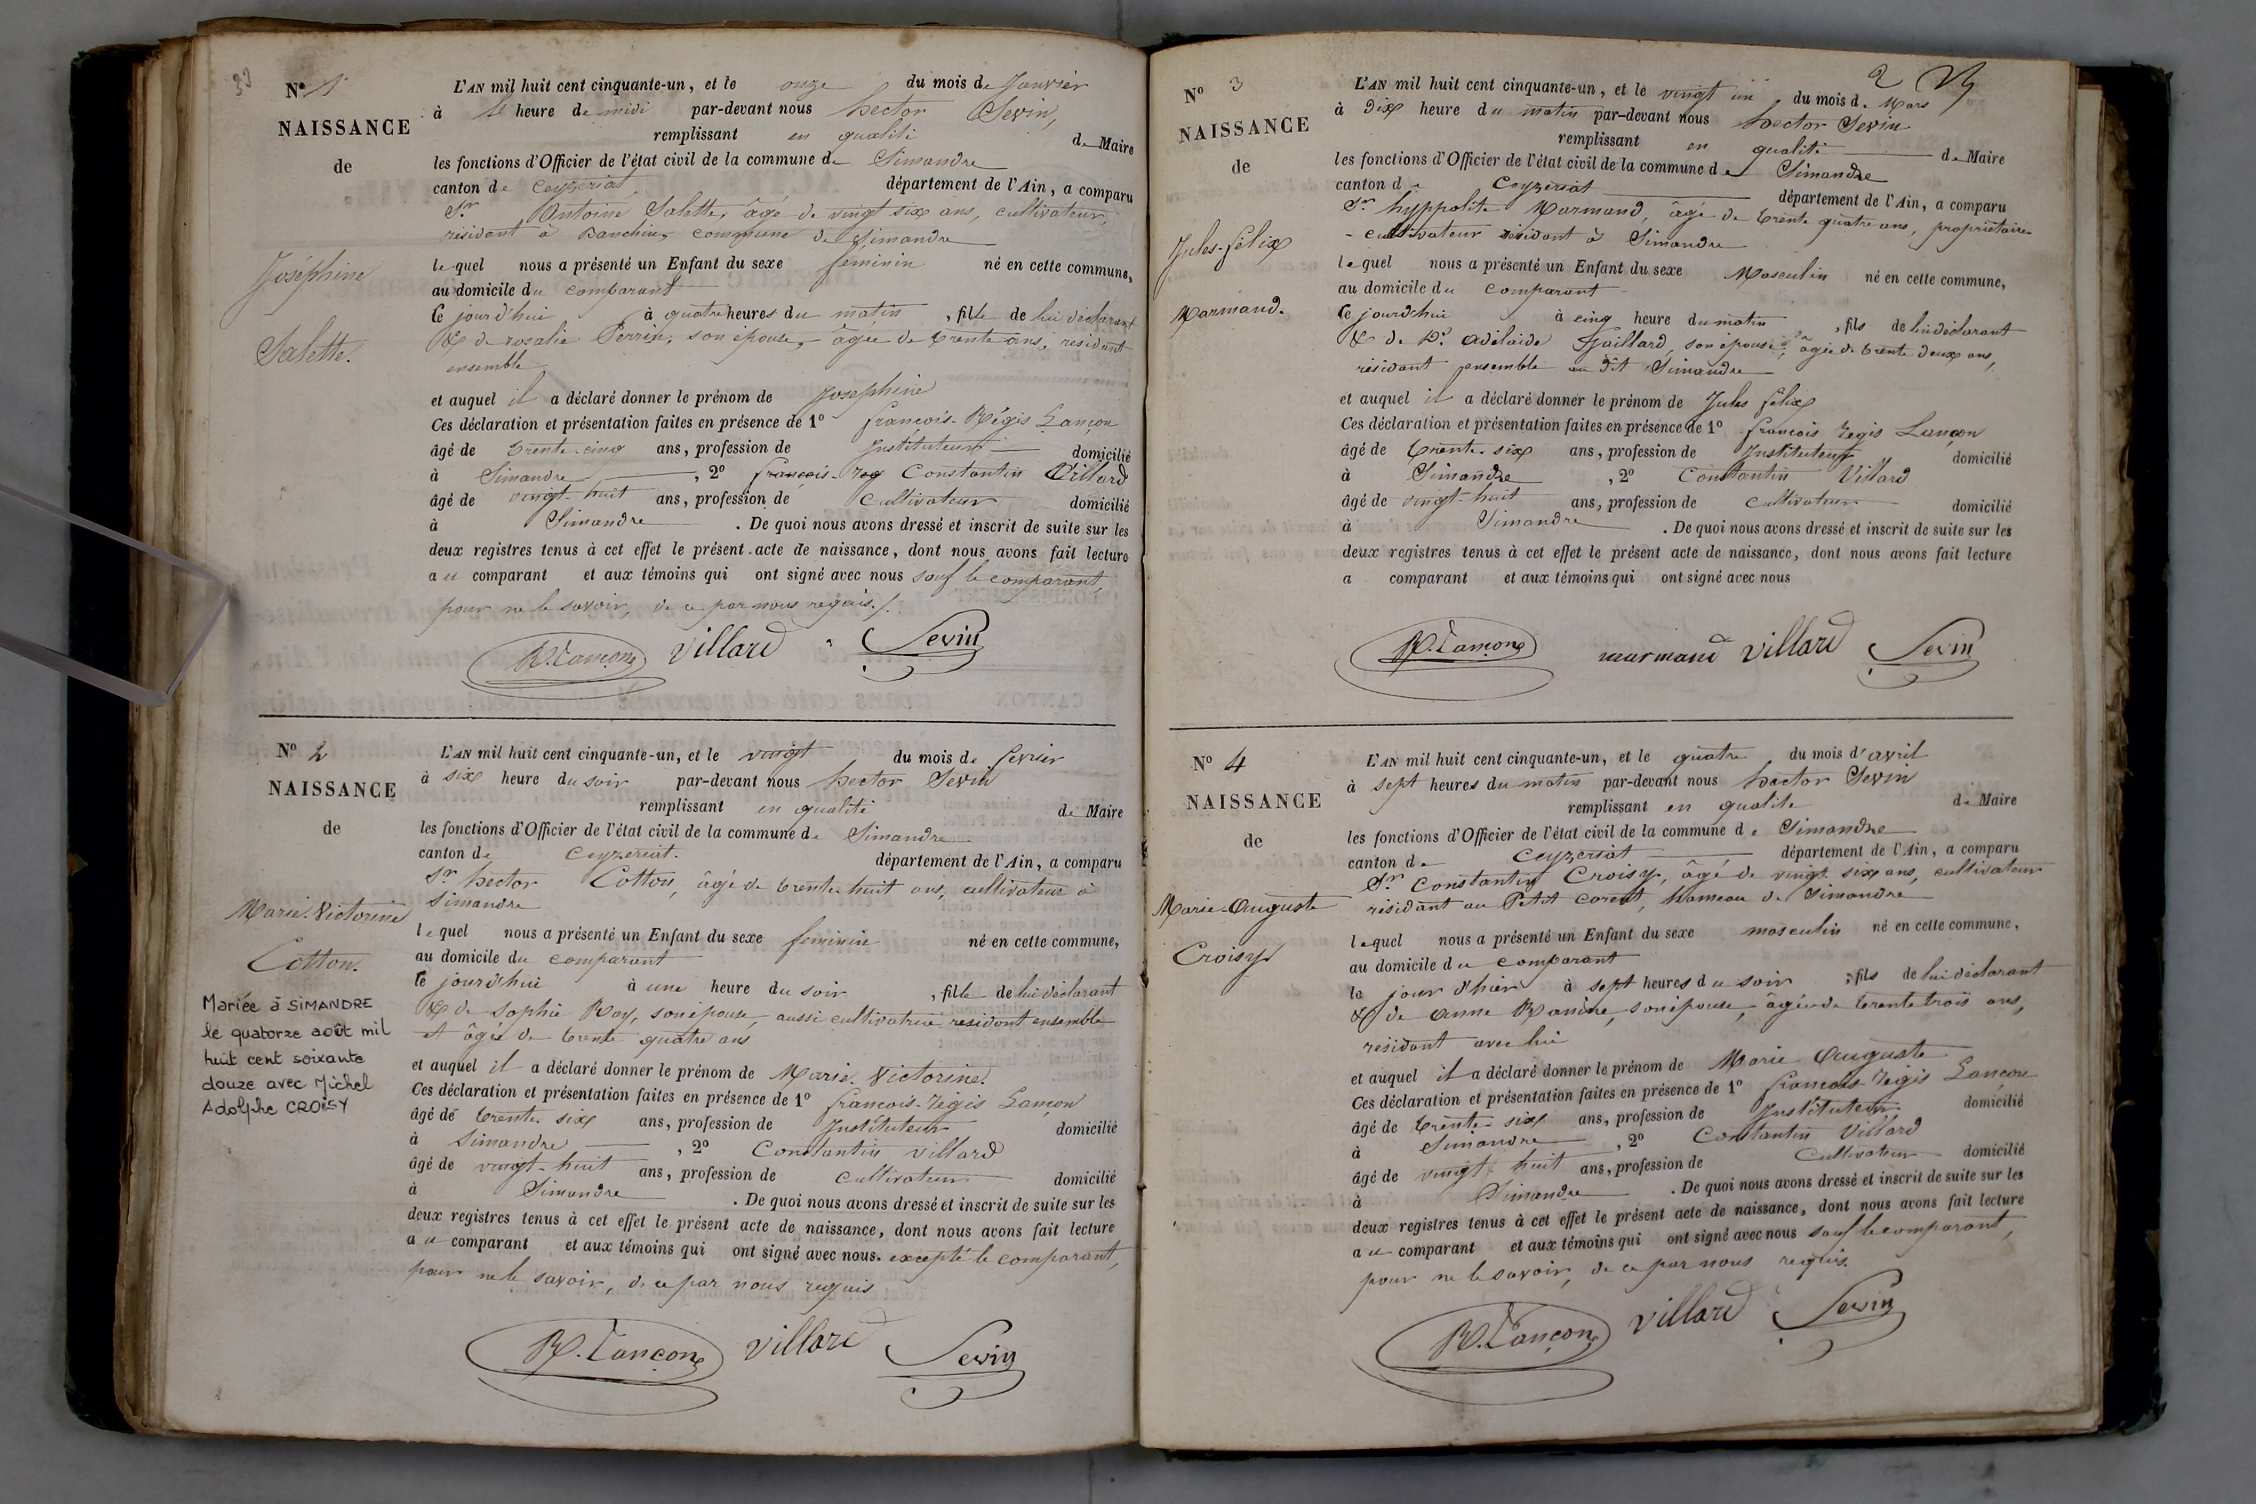 33
Nº 1
NAISSANCE
de
Joséphine
Salette.
L'AN mil huit cent cinquante-un, et le onze du mois de Janvier
à heure de midi par-devant nous hector Sevin,
remplissant en qualité de Maire
les fonctions d'Officier de l'état civil de la commune de Simandre
canton de Ceyzeriat département de l'Ain, a comparu
Sr. Antoine Salette, âgé de vingt six ans, cultivateur,
résidant à Banchin, commune de Simandre
lequel nous a présenté un Enfant du sexe feminin né en cette commune,
au domicile du comparant
Ce jourd'hui à quatre heures du matin, fille de lui déclarant
& de rosalie Perrin, son épouse, âgée de trente ans, residant
ensemble
et auquel il a déclaré donner le prénom de Josephine
Ces déclaration et présentation faites en présence de 1º francois-Régis Lançon
âgé de trente-cinq ans, profession de Instituteur domicilié
à Simandre, 2º françois-reg Constantin Villard
âgé de vingt-huit ans, profession de Cultivateur domicilié
à Simandre. De quoi nous avons dressé et inscrit de suite sur les
deux registres tenus à cet effet le présent acte de naissance, dont nous avons fait lecture
au comparant et aux témoins qui ont signé avec nous sauf le comparant,
pour ne le savoir, de ce par nous requis./.
R. Lançon Villard Sevin
Nº 2
NAISSANCE
de
Marie-Victorine
Cotton.
Mariée à SIMANDRE
le quatorze août mil
huit cent soixante
douze avec Michel
Adolphe CROISY
L'AN mil huit cent cinquante-un, et le vingt du mois de fevrier
à six heure du soir par-devant nous hector Sevin
remplissant en qualité de Maire
les fonctions d'Officier de l'état civil de la commune de Simandre
canton de Ceyzeriat. département de l'Ain, a comparu
Sr. hector Cotton, âgé de trente huit ans, cultivateur à
Simandre
lequel nous a présenté un Enfant du sexe feminin né en cette commune,
au domicile du comparant
Ce jourd'hui à une heure du soir, fille de lui déclarant
& de Sophie Roy, son épouse, aussi cultivatrice residant ensemble
et âgée de trente quatre ans
et auquel il a déclaré donner le prénom de Marie. Victorine.
Ces déclaration et présentation faites en présence de 1º francois-regis Lançon
âgé de trente six ans, profession de Instituteur domicilié
à Simandre, 2º Constantin Villard
âgé de vingt-huit ans, profession de Cultivateur domicilié
à Simandre. De quoi nous avons dressé et inscrit de suite sur les
deux registres tenus à cet effet le présent acte de naissance, dont nous avons fait lecture
au comparant et aux témoins qui ont signé avec nous. excepté le comparant,
pour ne le savoir, de ce par nous requis
R. Lançon Villard Sevin
2
Nº 3
NAISSANCE
de
Jules-felix
Marmand.
L'AN mil huit cent cinquante-un, et le vingt un du mois d. Mars
à dix heure du matin par-devant nous hector Sevin
remplissant en qualité de Maire
les fonctions d'Officier de l'état civil de la commune de Simandre
canton de Ceyzeriat département de l'Ain, a comparu
Sr. hyppolite Marmand, âgé de trente quatre ans, propriétaire
-cultivateur résidant à Simandre
lequel nous a présenté un Enfant du sexe Masculin né en cette commune,
au domicile du comparant
Ce jourd'hui à cinq heure du matin, fils de lui déclarant
& de De. Adélaide Gaillard, son épouse, âgée de trente deux ans,
résidant ensemble au dit Simandre
et auquel il a déclaré donner le prénom de Jules félix
Ces déclaration et présentation faites en présence de 1º francois regis Lançon
âgé de trente-six ans, profession de Instituteur domicilié
à Simandre, 2º Constantin Villard
âgé de vingt-huit ans, profession de Cultivateur domicilié
à Simandre. De quoi nous avons dressé et inscrit de suite sur les
deux registres tenus à cet effet le présent acte de naissance, dont nous avons fait lecture
a comparant et aux témoins qui ont signé avec nous
R. Lançon marmand Villard Sevin
Nº 4
NAISSANCE
de
Marie-Auguste
Croisy
L'AN mil huit cent cinquante-un, et le quatre du mois d'avril
à sept heures du matin par-devant nous hector Sevin
remplissant en qualité de Maire
les fonctions d'Officier de l'état civil de la commune de Simandre
canton de Ceyzeriat département de l'Ain, a comparu
Sr. Constantin Croisy, âgé de vingt six ans, cultivateur
résidant au Petit Corent, hameau de Simandre
lequel nous a présenté un Enfant du sexe masculin né en cette commune,
au domicile du comparant
le jour d'hier à sept heures du soir, fils de lui déclarant
& de Anne, son épouse, âgée de trente trois ans,
résidant avec lui
et auquel il a déclaré donner le prénom de Marie Auguste
Ces déclaration et présentation faites en présence de 1º francois regis Lançon
âgé de trente-six ans, profession de Instituteur domicilié
à Simandre, 2º Constantin Villard
âgé de vingt huit ans, profession de Cultivateur domicilié
à Simandre. De quoi nous avons dressé et inscrit de suite sur les
deux registres tenus à cet effet le présent acte de naissance, dont nous avons fait lecture
au comparant et aux témoins qui ont signé avec nous sauf le comparant,
pour ne le savoir, de ce par nous requis.
R. Lançon Villard Sevin